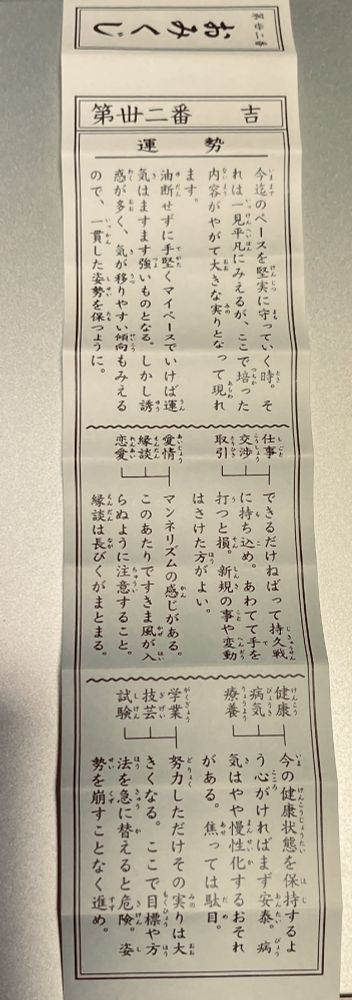 第廿二番
おみくじ
第廿二番　吉
運勢
今迄のペースを堅実に守っていく時。そ
れは一見平凡にみえるが、ここで培った
内容がやがて大きな実りとなって現れ
ます。
油断せずに手堅くマイペースでいけば運
気はますます強いものとなる。しかし誘
惑が多く、気が移りやすい傾向もみえる
ので、一貫した姿勢を保つように。
仕事
交渉
取引
できるだけねばって持久戦
に持ち込め。あわてて手を
打つと損。新規の事や変動
はさけた方がよい。
愛情
縁談
恋愛
マンネリズムの感じがある。
このあたりですきま風が入
らぬように注意すること。
縁談は長びくがまとまる。
健康
病気
療養
今の健康状態を保持するよ
う心がければまず安泰。病
気はやや慢性化するおそれ
がある。焦っては駄目。
学業
技芸
試験
努力しただけその実りは大
きくなる。ここで目標や方
法を急に替えると危険。姿
勢を崩すことなく進め。